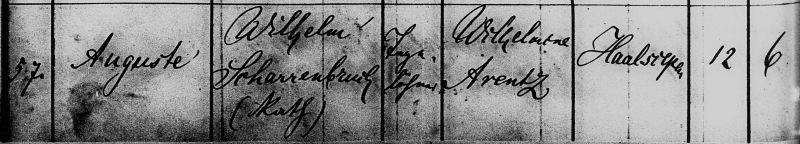 57. Auguste Wilhelm Scharrenbruch (Kath) Tage- löhner Wilhelmine Arentz Haalsiepen 12 6